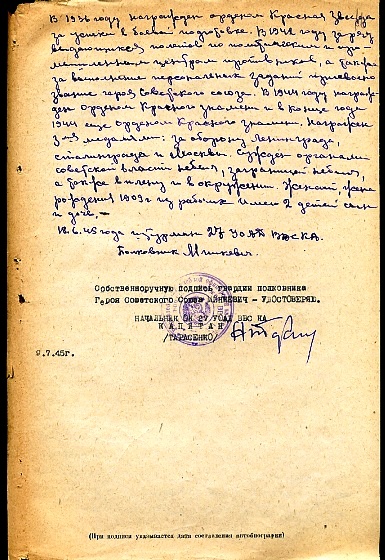 В 1936 году, награжден орденом Красная Звезда
за успехи в боевой подготовке. В 1942 году за ряд
выдающихся полетов по политическим и
центрам противников, а также
за выполнение персональных заданий присвоено
звание героя советского союза. В 1944 году награж-
ден Орденом Красного знамени и в конце года
1944 еще Орденом Красного знамени. Награжден
3-мя медалями: за оборону Ленинграда,
Сталинграда и Москвы. Сужден органами
советской власти небыл, заграницей небыл,
а также в плену и в окружении. Женат, жена
рождения 1909 г из рабочих имею 2 детей сын
и дочь. —
18.6.45 года 27
Полковник Минкевич.
Собственноручную подпись гвардии полковника
Героя Советского Союза МИНКЕВИЧ - УДОСТОВЕРЯЮ.
НАЧАЛЬНИК 27 УОАД ВВС КА
КАПИТАН
/ТАРАСЕНКО/
9.7.45г.
(При подписи указывается дата составления автобиографии)